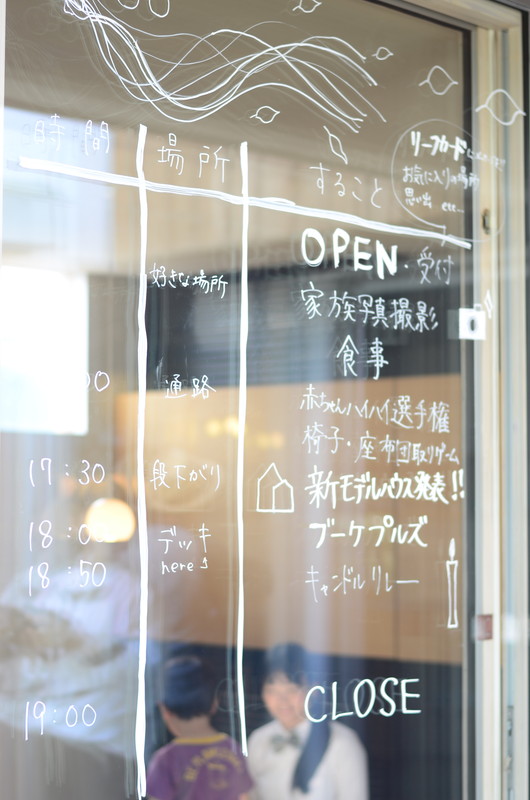 時間 場所 すること
リーフカード
お気に入りの場所
思い出 etc...
OPEN・受付
好きな場所 家族写真撮影
食事
00 通路 赤ちゃんハイハイ選手権
椅子・座布団取りゲーム
17:30 段下がり 新モデルハウス発表!!
18:00 デッキ ブーケプルズ
here
18:50 キャンドルリレー
19:00 CLOSE